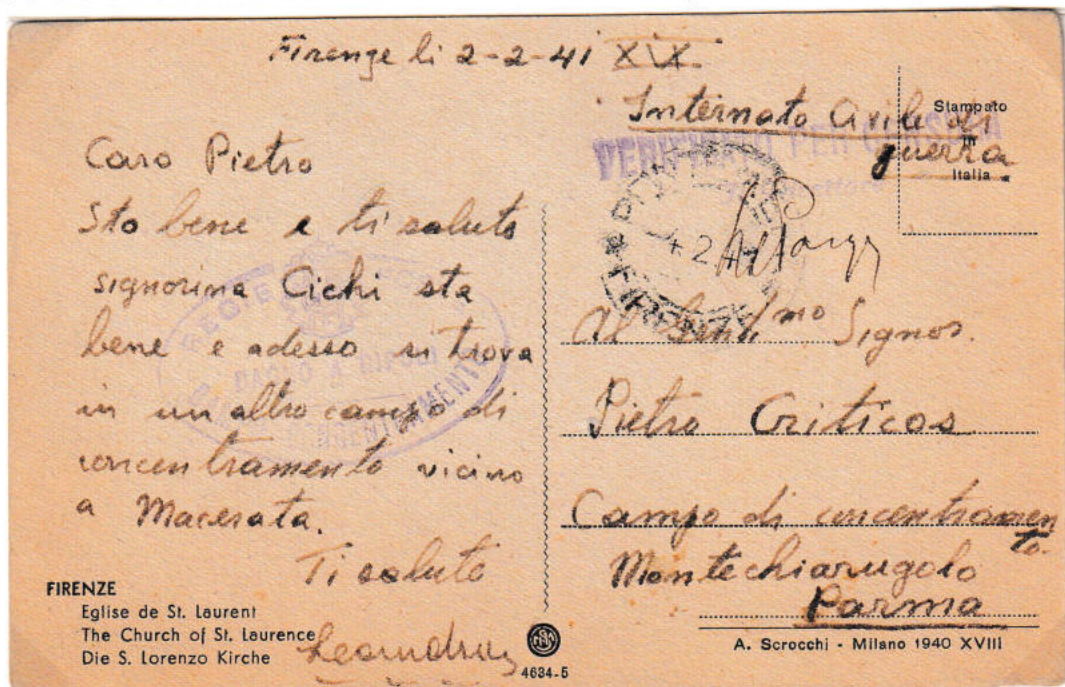 Firenze li 2-2-41 XIX.
Caro Pietro
Sto bene e ti saluto
signorina Cichi sta
bene e adesso si trova
in un altro campo di
concentramento vicino
a Macerata.
Ti saluto
FIRENZE
Eglise de St. Laurent
The Church of St. Laurence
Die S. Lorenzo Kirche
4634-5
Internato Civile di
guerra.
Stampato
in
Italia
VERIFICATO PER CENSURA
FIRENZE
BAGNO A RIPOLI
CONCENTRAMENTO
Al Signor.
Pietro Criticos
Campo di concentramen
to.
Montechiarugolo
Parma
A. Scrocchi - Milano 1940 XVIII